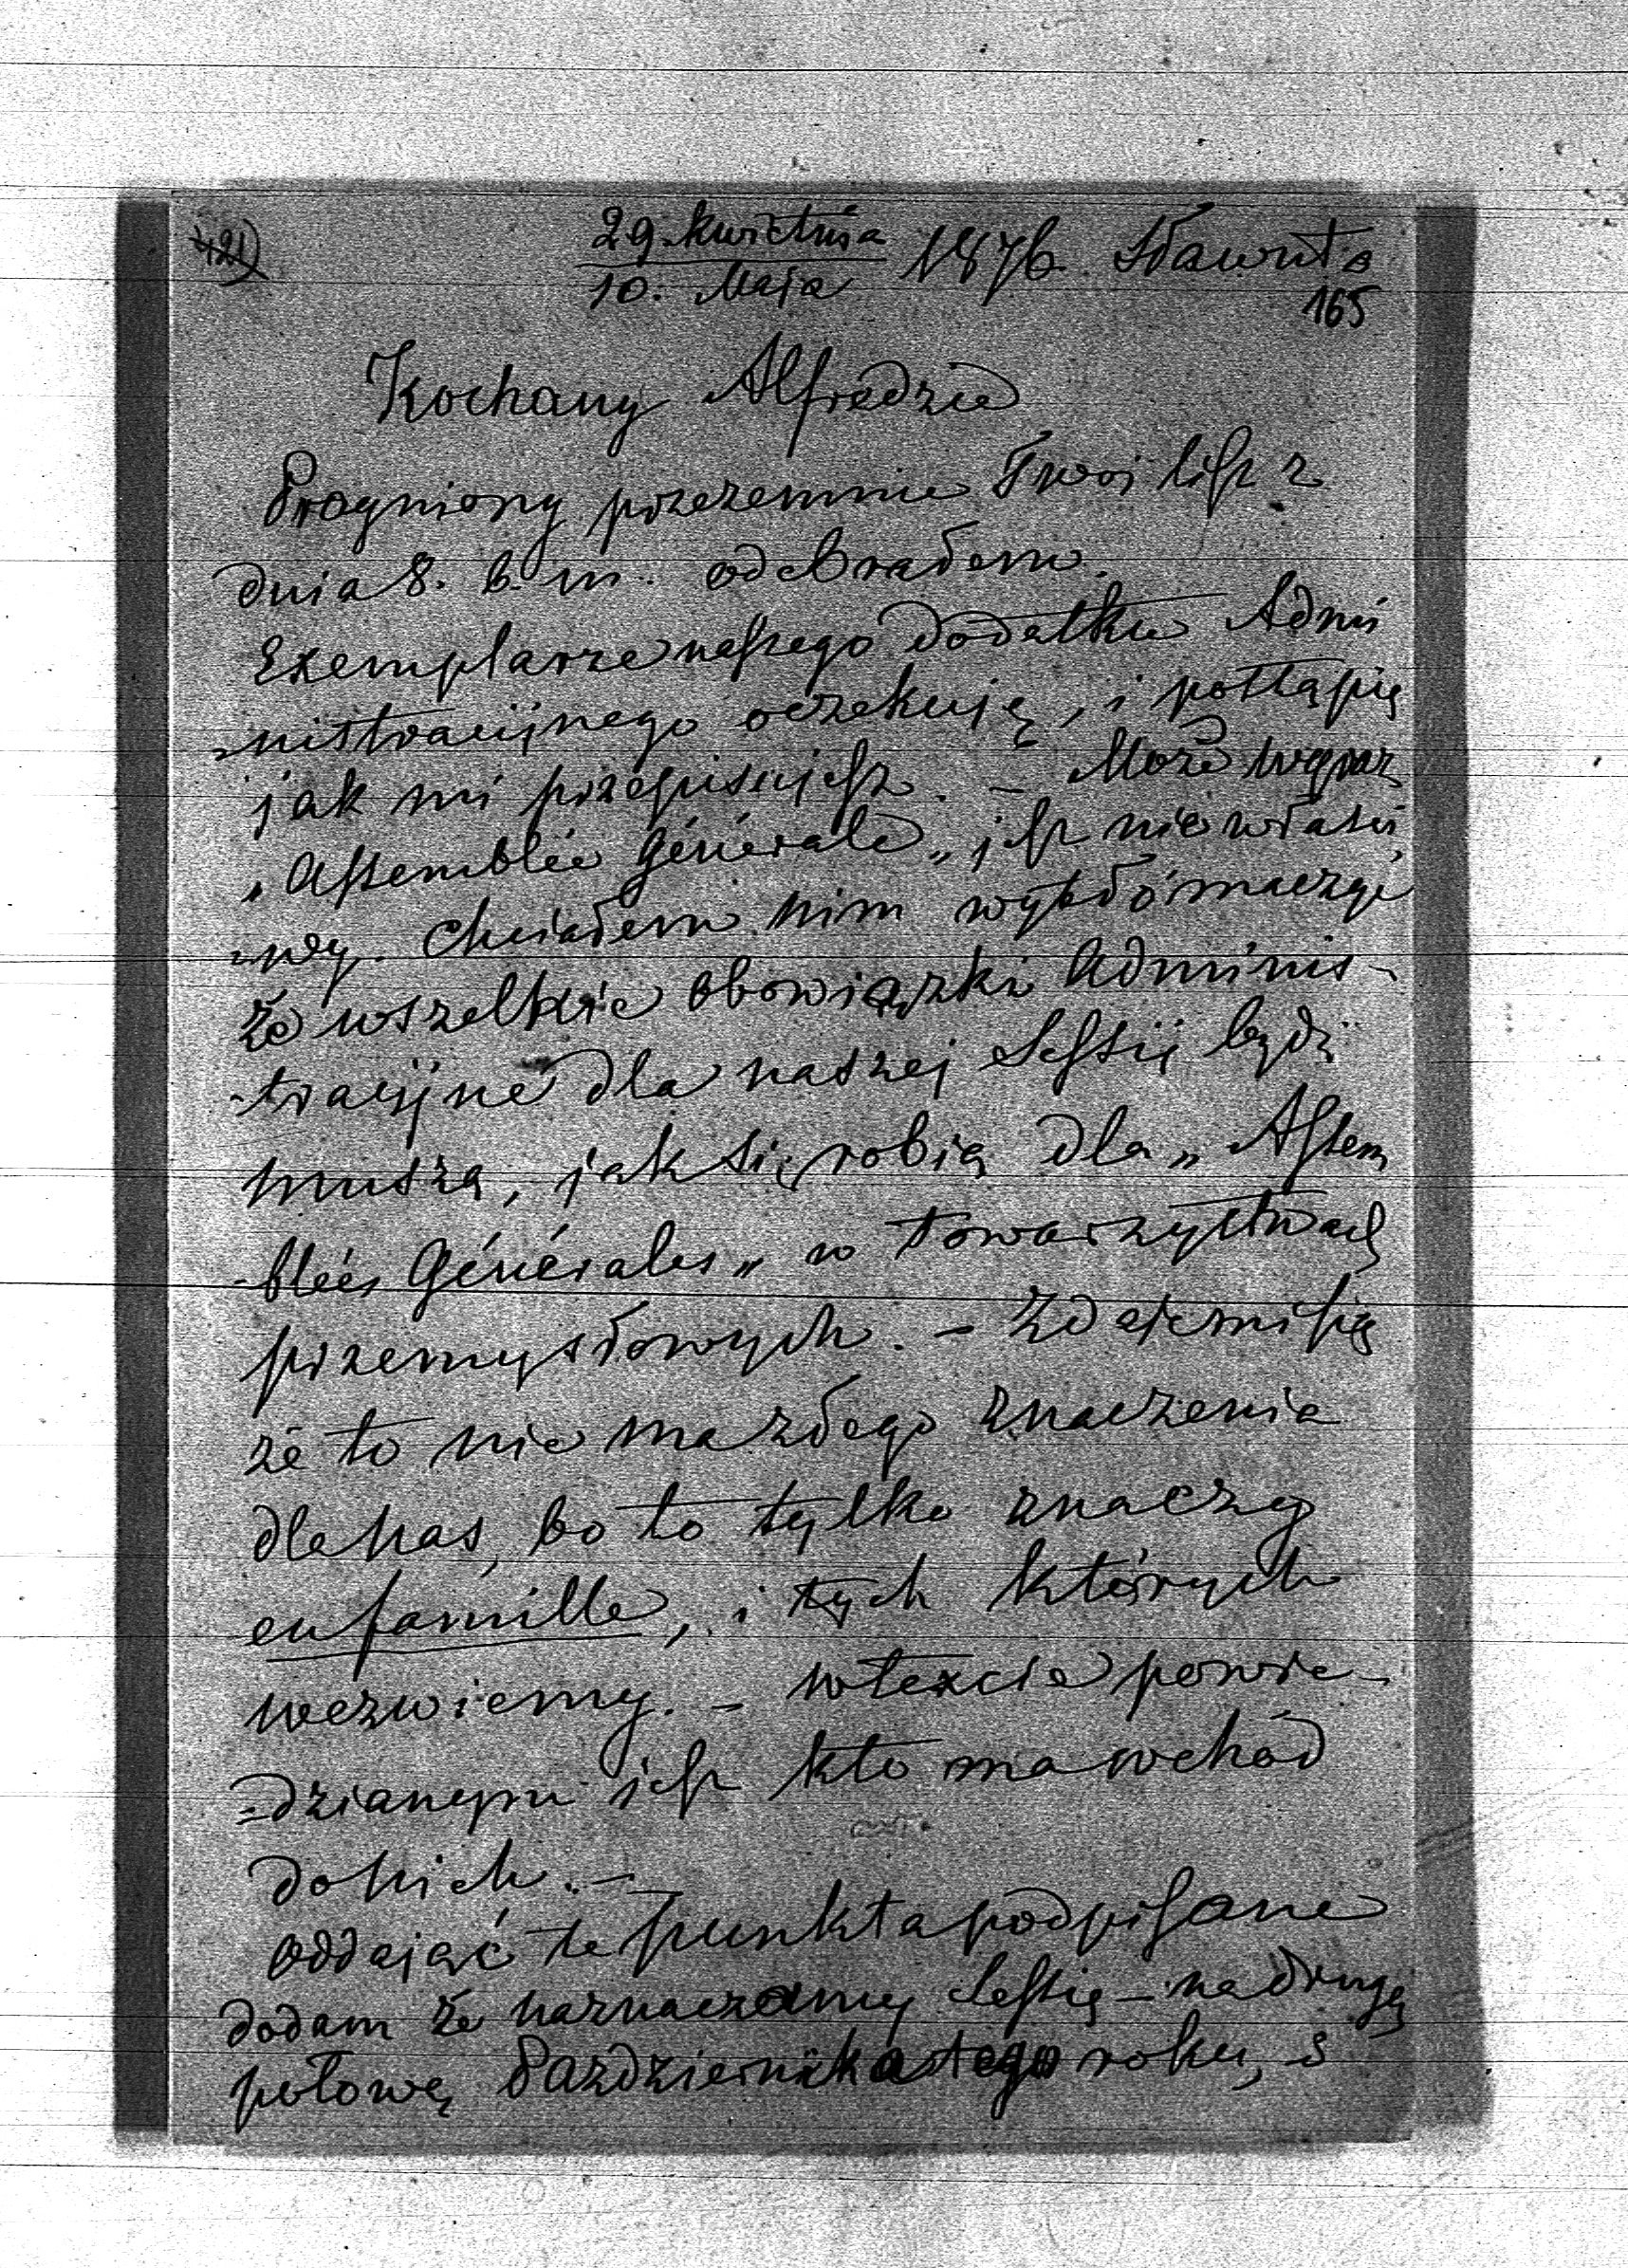 421)
29. kwietnia
10. Maja 1876. Sławuta
165
Kochany Alfredzie
Pragniony przezemnie Twoj list z
dnia 8. b. m. odebrałem.
Exemplarze naszego dodatku Admi
-nistracyjnego oczekuję, i postąpię
jak mi przepisujesz. – Może wyraz
„Assemblée Générale„ jest niewłaści
-wy. Chciałem nim wytłómaczyć
że wszelkie obowiązki Adminis-
-tracyjne dla naszej Sessij bydź
muszą, jak się robią dla „Assem
-blées Générales„ w towarzystwach
przemysłowych. – Zdaje mi się
że to nie ma złego znaczenia
dla nas, bo to tylko znaczy
en famille, i tych których
wezwiemy. – w texcie powie-
-dzianym jest kto ma wchód
do nich. –
Oddając te punkta podpisane
dodam że naznaczamy Sessię – na drugą
połowę Pazdziernika tego roku, i